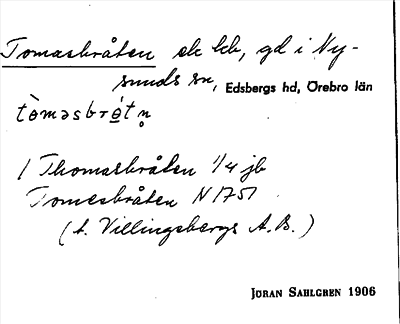 Tomasbråten sk lek, gd i Ny-
sunds sn, Edsbergs hd, Örebro län
tòmasbrǻtn̥
1 Thomasbråten 1/4 jb
Tomesbråten N 1751
(t. Villingsbergs A.B.)
JÖRAN SAHLGREN 1906